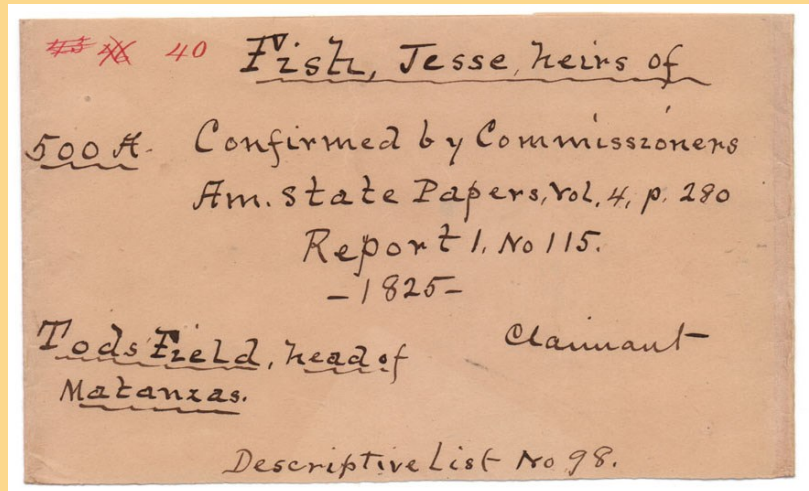 45 46 40 Fish, Jesse, heirs of
500 A. Confirmed by Commissioners
Am. State Papers, Vol, 4, p. 280
Report 1. No 115.
-1825-
Tods Field, head of
Claimant
Matanzas.
Descriptive List No 98.